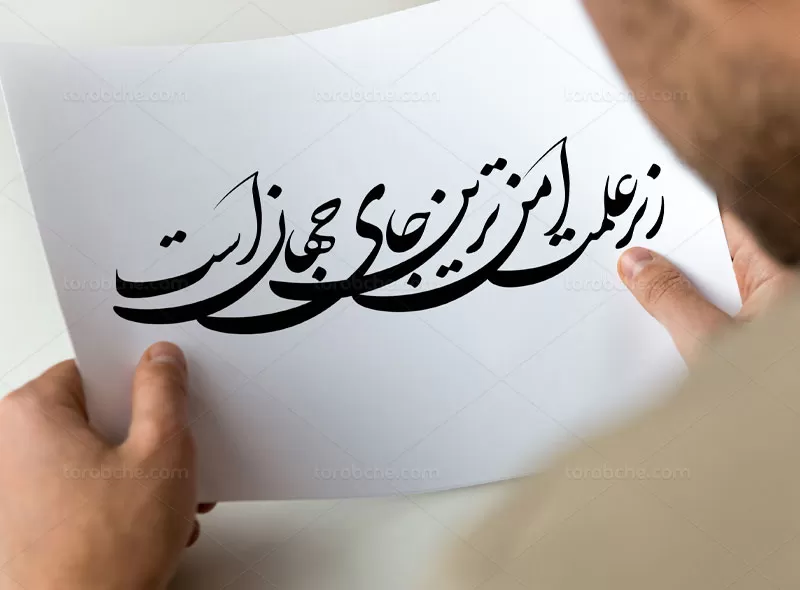 زیر علمت امن ترین جای جهان است
torobche.com torobche.com torobche.com
torobche.com torobche.com torobche.com
torobche.com torobche.com torobche.com